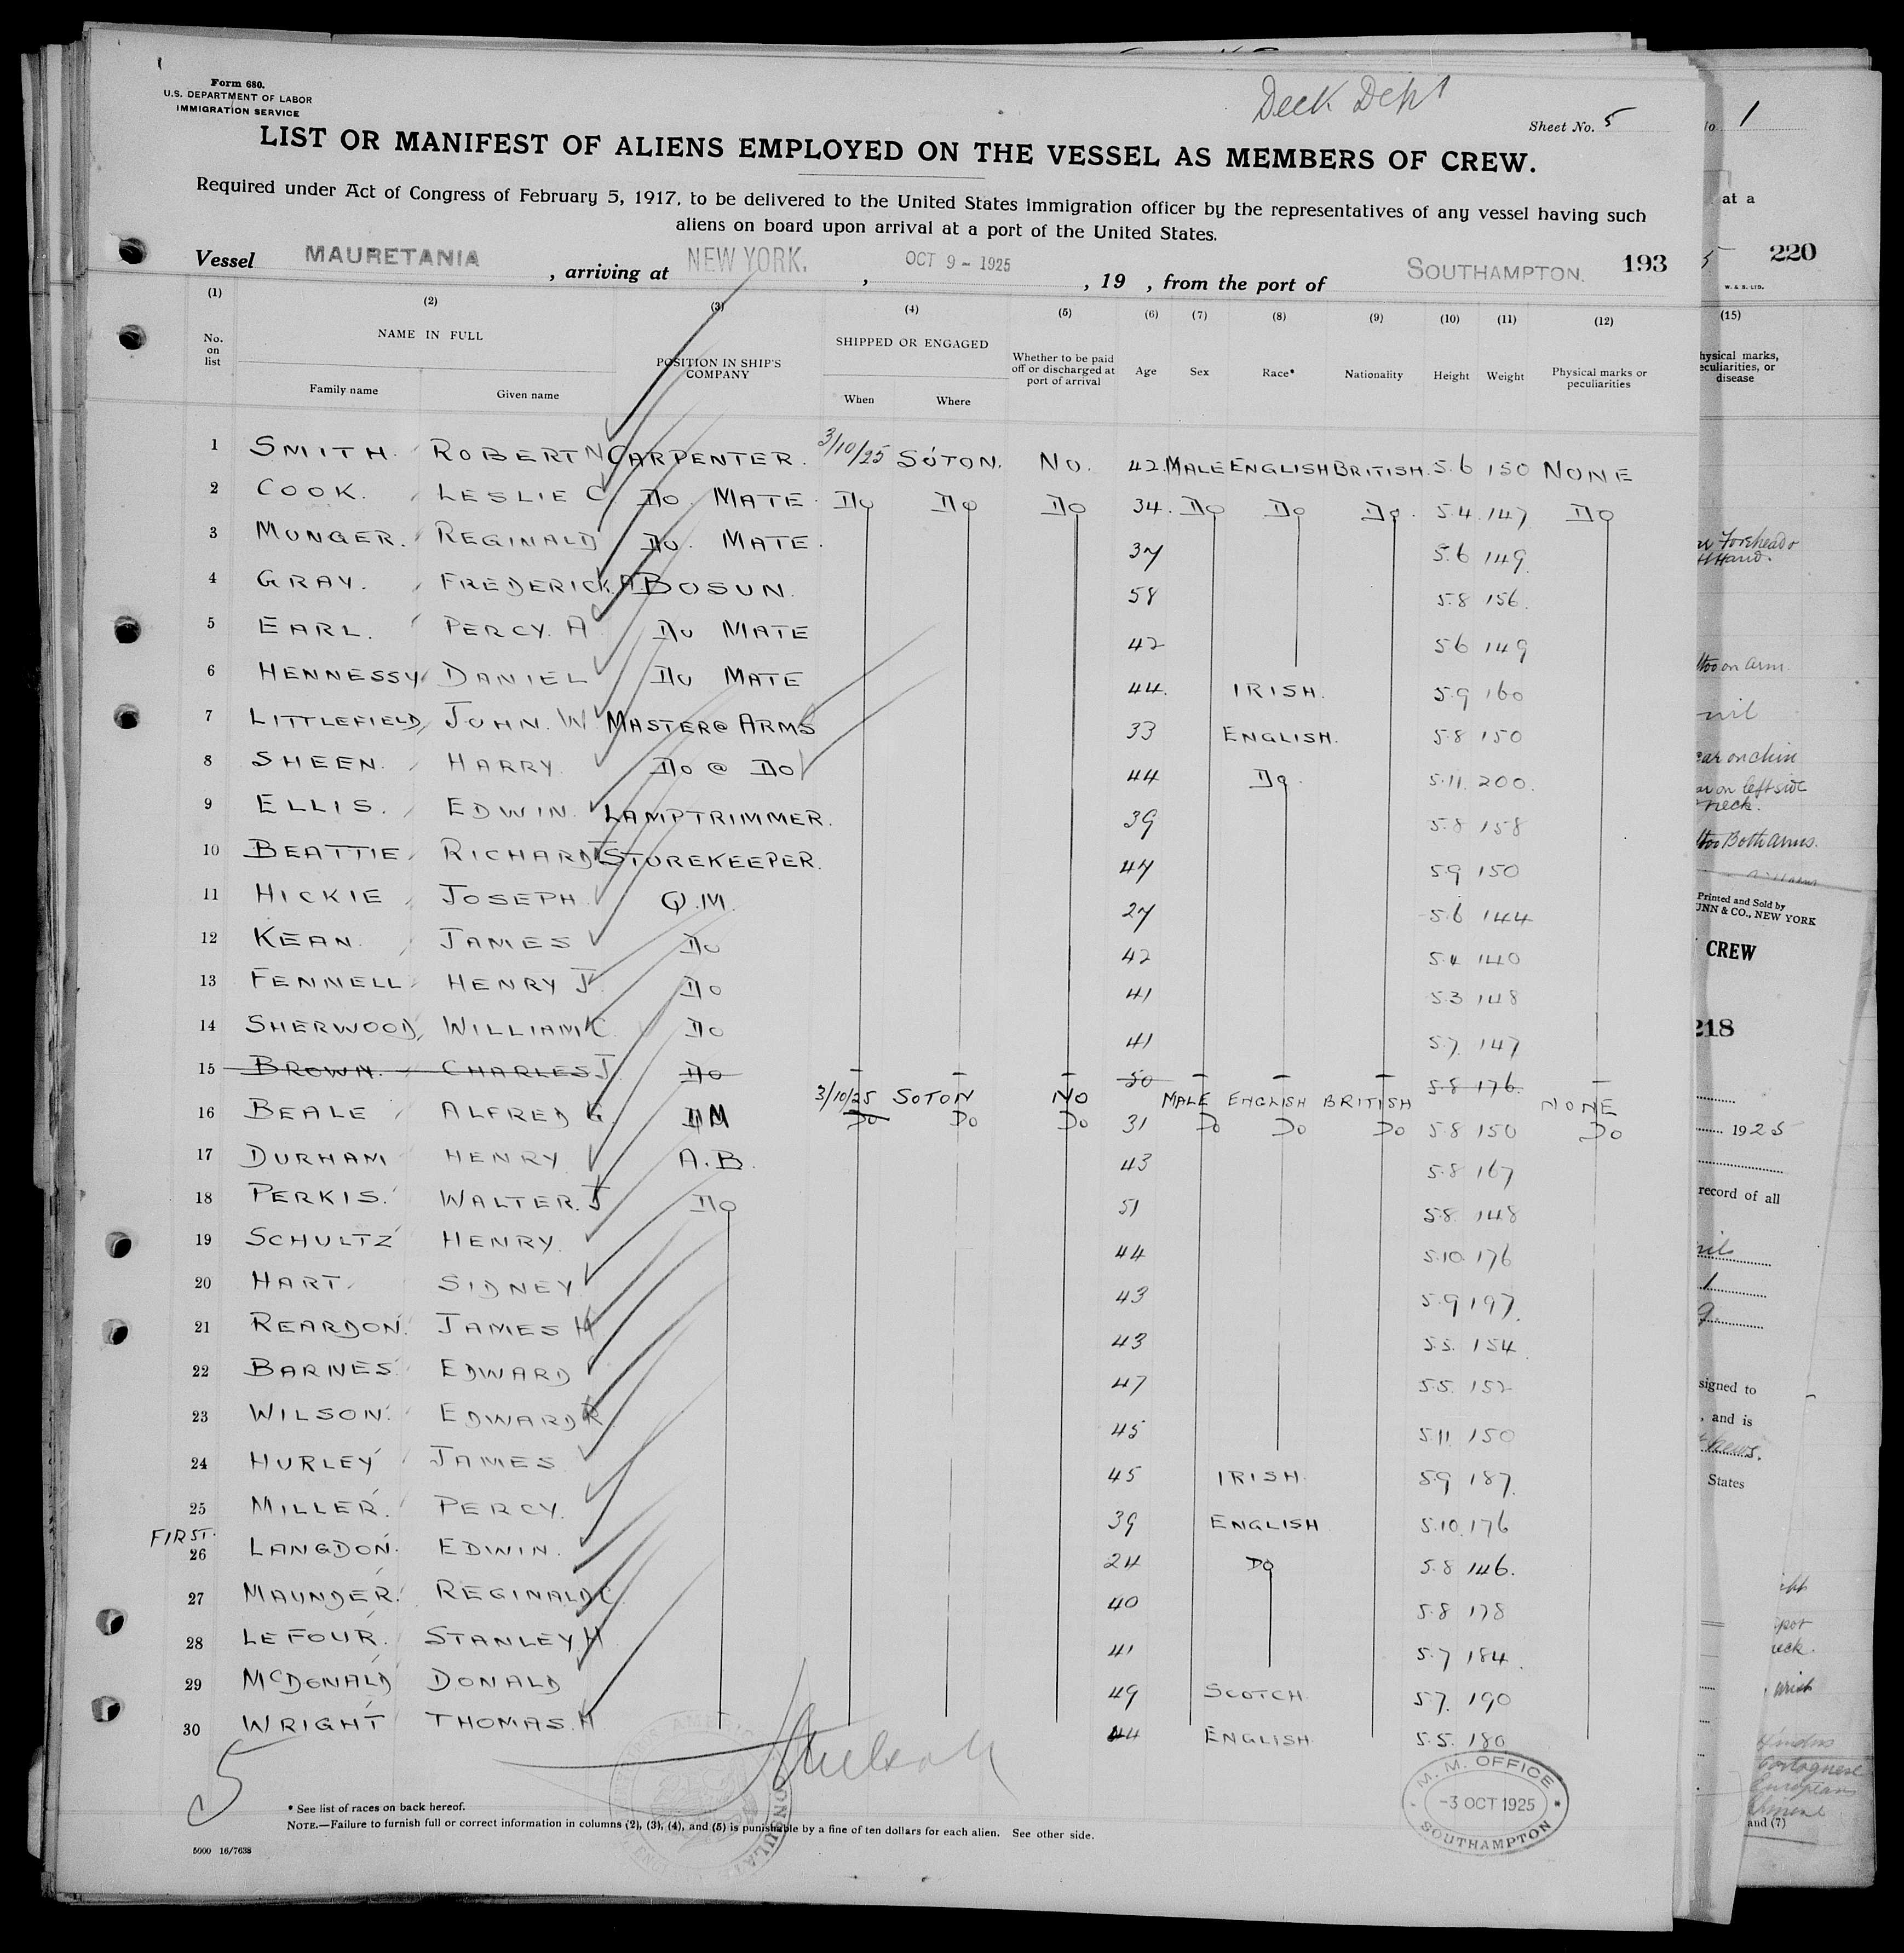 Form 680.
U.S. DEPARTMENT OF LABOR
IMMIGRATION SERVICE
Deck Dept
Sheet No. 5
LIST OR MANIFEST OF ALIENS EMPLOYED ON THE VESSEL AS MEMBERS OF CREW.
Required under Act of Congress of February 5, 1917, to be delivered to the United States immigration officer by the representatives of any vessel having such
aliens on board upon arrival at a port of the United States.
Vessel MAURETANIA, arriving at NEW YORK., OCT 9 - 1925, 19 , from the port of SOUTHAMPTON. 193
(1) (2) (3) (4) (5) (6) (7) (8) (9) (10) (11) (12)
No. on list NAME IN FULL Family name Given name POSITION IN SHIP'S COMPANY SHIPPED OR ENGAGED When Where Whether to be paid off or discharged at port of arrival Age Sex Race* Nationality Height Weight Physical marks or peculiarities
1 SMITH. ROBERT N CARPENTER. 3/10/25 SOTON. NO. 42 MALE ENGLISH BRITISH. 5.6 150 NONE
2 COOK. LESLIE C DO. MATE. DO DO DO 34. DO DO DO. 5.4. 147 DO
3 MUNGER. REGINALD DO. MATE. 37 5.6 149.
4 GRAY. FREDERICK A BOSUN. 58 5.8 156.
5 EARL. PERCY. A DO MATE 42 5.6 149
6 HENNESSY DANIEL DO MATE 44. IRISH. 5.9 160
7 LITTLEFIELD JOHN. W MASTER @ ARMS 33 ENGLISH. 5.8 150
8 SHEEN. HARRY. DO @ DO 44 DO. 5.11. 200.
9 ELLIS. EDWIN. LAMPTRIMMER. 39 5.8 158
10 BEATTIE RICHARD STOREKEEPER. 47 5.9 150
11 HICKIE JOSEPH. Q.M. 27 5.6 144
12 KEAN. JAMES DO 42 5.4 140
13 FENNELL HENRY J. DO 41 5.3 148
14 SHERWOOD, WILLIAM C. DO 41 5.7. 147
15 BROWN. CHARLES J. DO 50 5.8 176.
3/10/25 SOTON NO MALE ENGLISH BRITISH NONE
16 BEALE ALFRED G. DO DO DO 31 DO DO DO 5.8 150 DO
17 DURHAM HENRY A.B. 43 5.8 167
18 PERKIS. WALTER. J DO 51 5.8. 148
19 SCHULTZ HENRY. 44 5.10. 176
20 HART. SIDNEY 43 5.9 197.
21 REARDON. JAMES H 43 5.5. 154.
22 BARNES. EDWARD 47 5.5. 152
23 WILSON. EDWARD R. 45 5.11. 150
24 HURLEY JAMES 45 IRISH. 5.9 187.
25 MILLER. PERCY. 39 ENGLISH 5.10. 176
FIRST.
26 LANGDON. EDWIN. 24 DO 5.8 146.
27 MAUNDER. REGINALD C 40 5.8 178
28 LEFOUR. STANLEY. H 41 5.7 184.
29 MCDONALD DONALD 49 SCOTCH. 5.7. 190
30 WRIGHT THOMAS. H 44 ENGLISH. 5.5. 180
5
M. M. OFFICE
-3 OCT 1925
SOUTHAMPTON
* See list of races on back hereof.
NOTE.—Failure to furnish full or correct information in columns (2), (3), (4), and (5) is punishable by a fine of ten dollars for each alien. See other side.
5000 16/7638
1
at a
220
W. & S. LTD.
(15)
physical marks,
peculiarities, or
disease
on arm.
nil
on chin
on left side
neck.
Both Arms.
Printed and Sold by
UNN & CO., NEW YORK
CREW
218
1925
record of all
nil
1
signed to
, and is
States
Portuguese
European
Chinese
and (7)